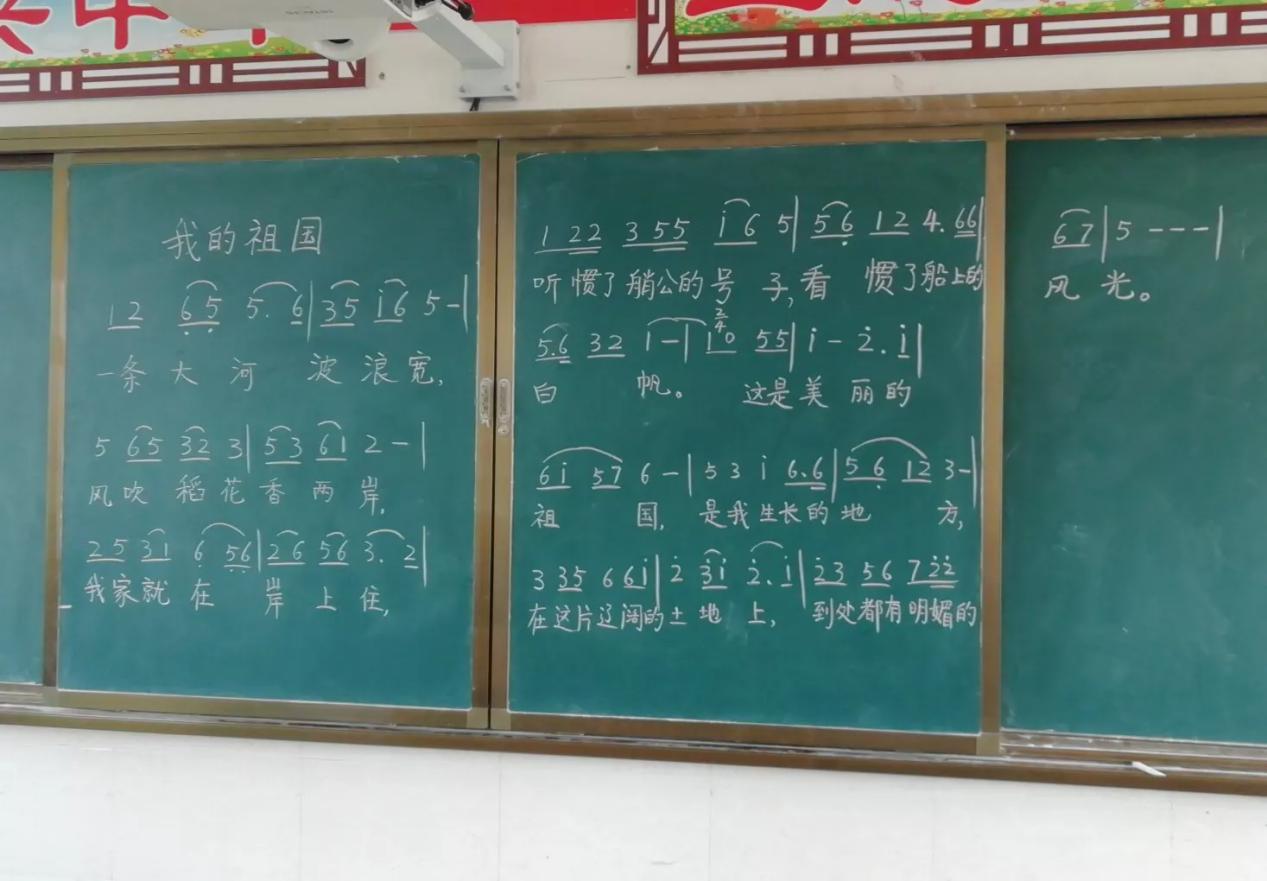 我的祖国
12 6̣5̣ 5. 6|35 i6 5-|
一条大河 波浪宽,
5 65 32 3|53 61 2-|
风吹稻花香两岸,
25 31 6 5̣6̣|26 56 3. 2|
我家就在 岸上住,
122 355 i6 5|56̣ 12 4.66|
听惯了艄公的号子,看 惯了船上的
5.6 32 i-|2/4 i0 55|i-2̇.i|
白 帆。 这是美丽的
6i 57 6-|53i6.6|56̣ 12 3-|
祖 国, 是我生长的地 方,
3 35 6 6i|2̇ 3̇i 2̇.i|2̇3 56 72̇2̇
在这片辽阔的土地上, 到处都有明媚的
67|5---|
风光。